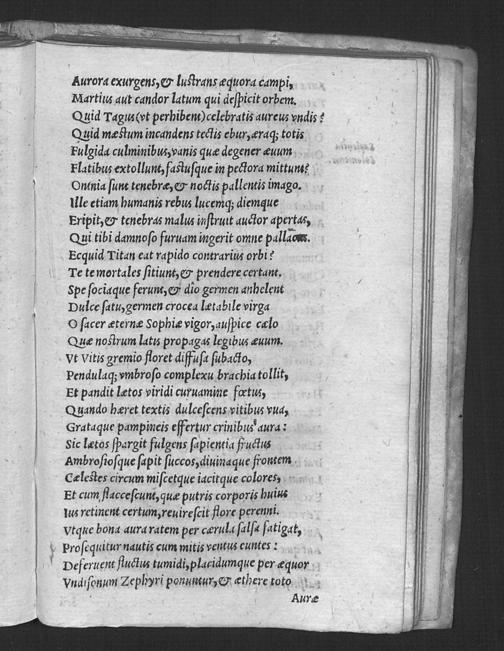 Aurora exurgens, & lustrans æquora campi,
Martius aut candor latum qui despicit orbem.
Quid Tagus (vt perhibem) celebratis aureus vndis?
Quid mæstum incandens tectis ebur, æraq; totis
Fulgida culminibus, vanis quæ degener æuum
Flatibus extollunt, fastusque in pectora mittunt?
Omnia sunt tenebræ, & noctis pallentis imago.
Ille etiam humanis rebus lucemq; diemque
Eripit, & tenebras malus instruit auctor apertas,
Qui tibi damnoso furuam ingerit omne
Ecquid Titan eat rapido contrarius orbi?
Te te mortales sitiunt, & prendere certant.
Spe sociaque ferunt, & dio germen anhelent
Dulce satu, germen crocea lætabile virga
O sacer æternæ Sophiæ vigor, auspice cælo
Quæ nostrum latis propagas legibus æuum.
Vt Vitis gremio floret diffusa subacto,
Pendulaq; vmbroso complexu brachia tollit,
Et pandit lætos viridi curuamine fœtus,
Quando hæret textis dulcescens vitibus vua,
Grataque pampineis effertur crinibus aura:
Sic lætos spargit fulgens sapientia fructus
Ambrosiosque sapit succos, diuinaque frontem
Cælestes circum miscetque iacitque colores,
Et cum flaccescunt, quæ putris corporis huius
Ius retinent certum, reuirescit flore perenni.
Vtque bona aura ratem per cærula salsa fatigat,
Prosequitur nautis cum mitis ventus euntes:
Deferuent fluctus tumidi, placidumque per æquor
Vndisonum Zephyri ponuntur, & æthere toto
Auræ